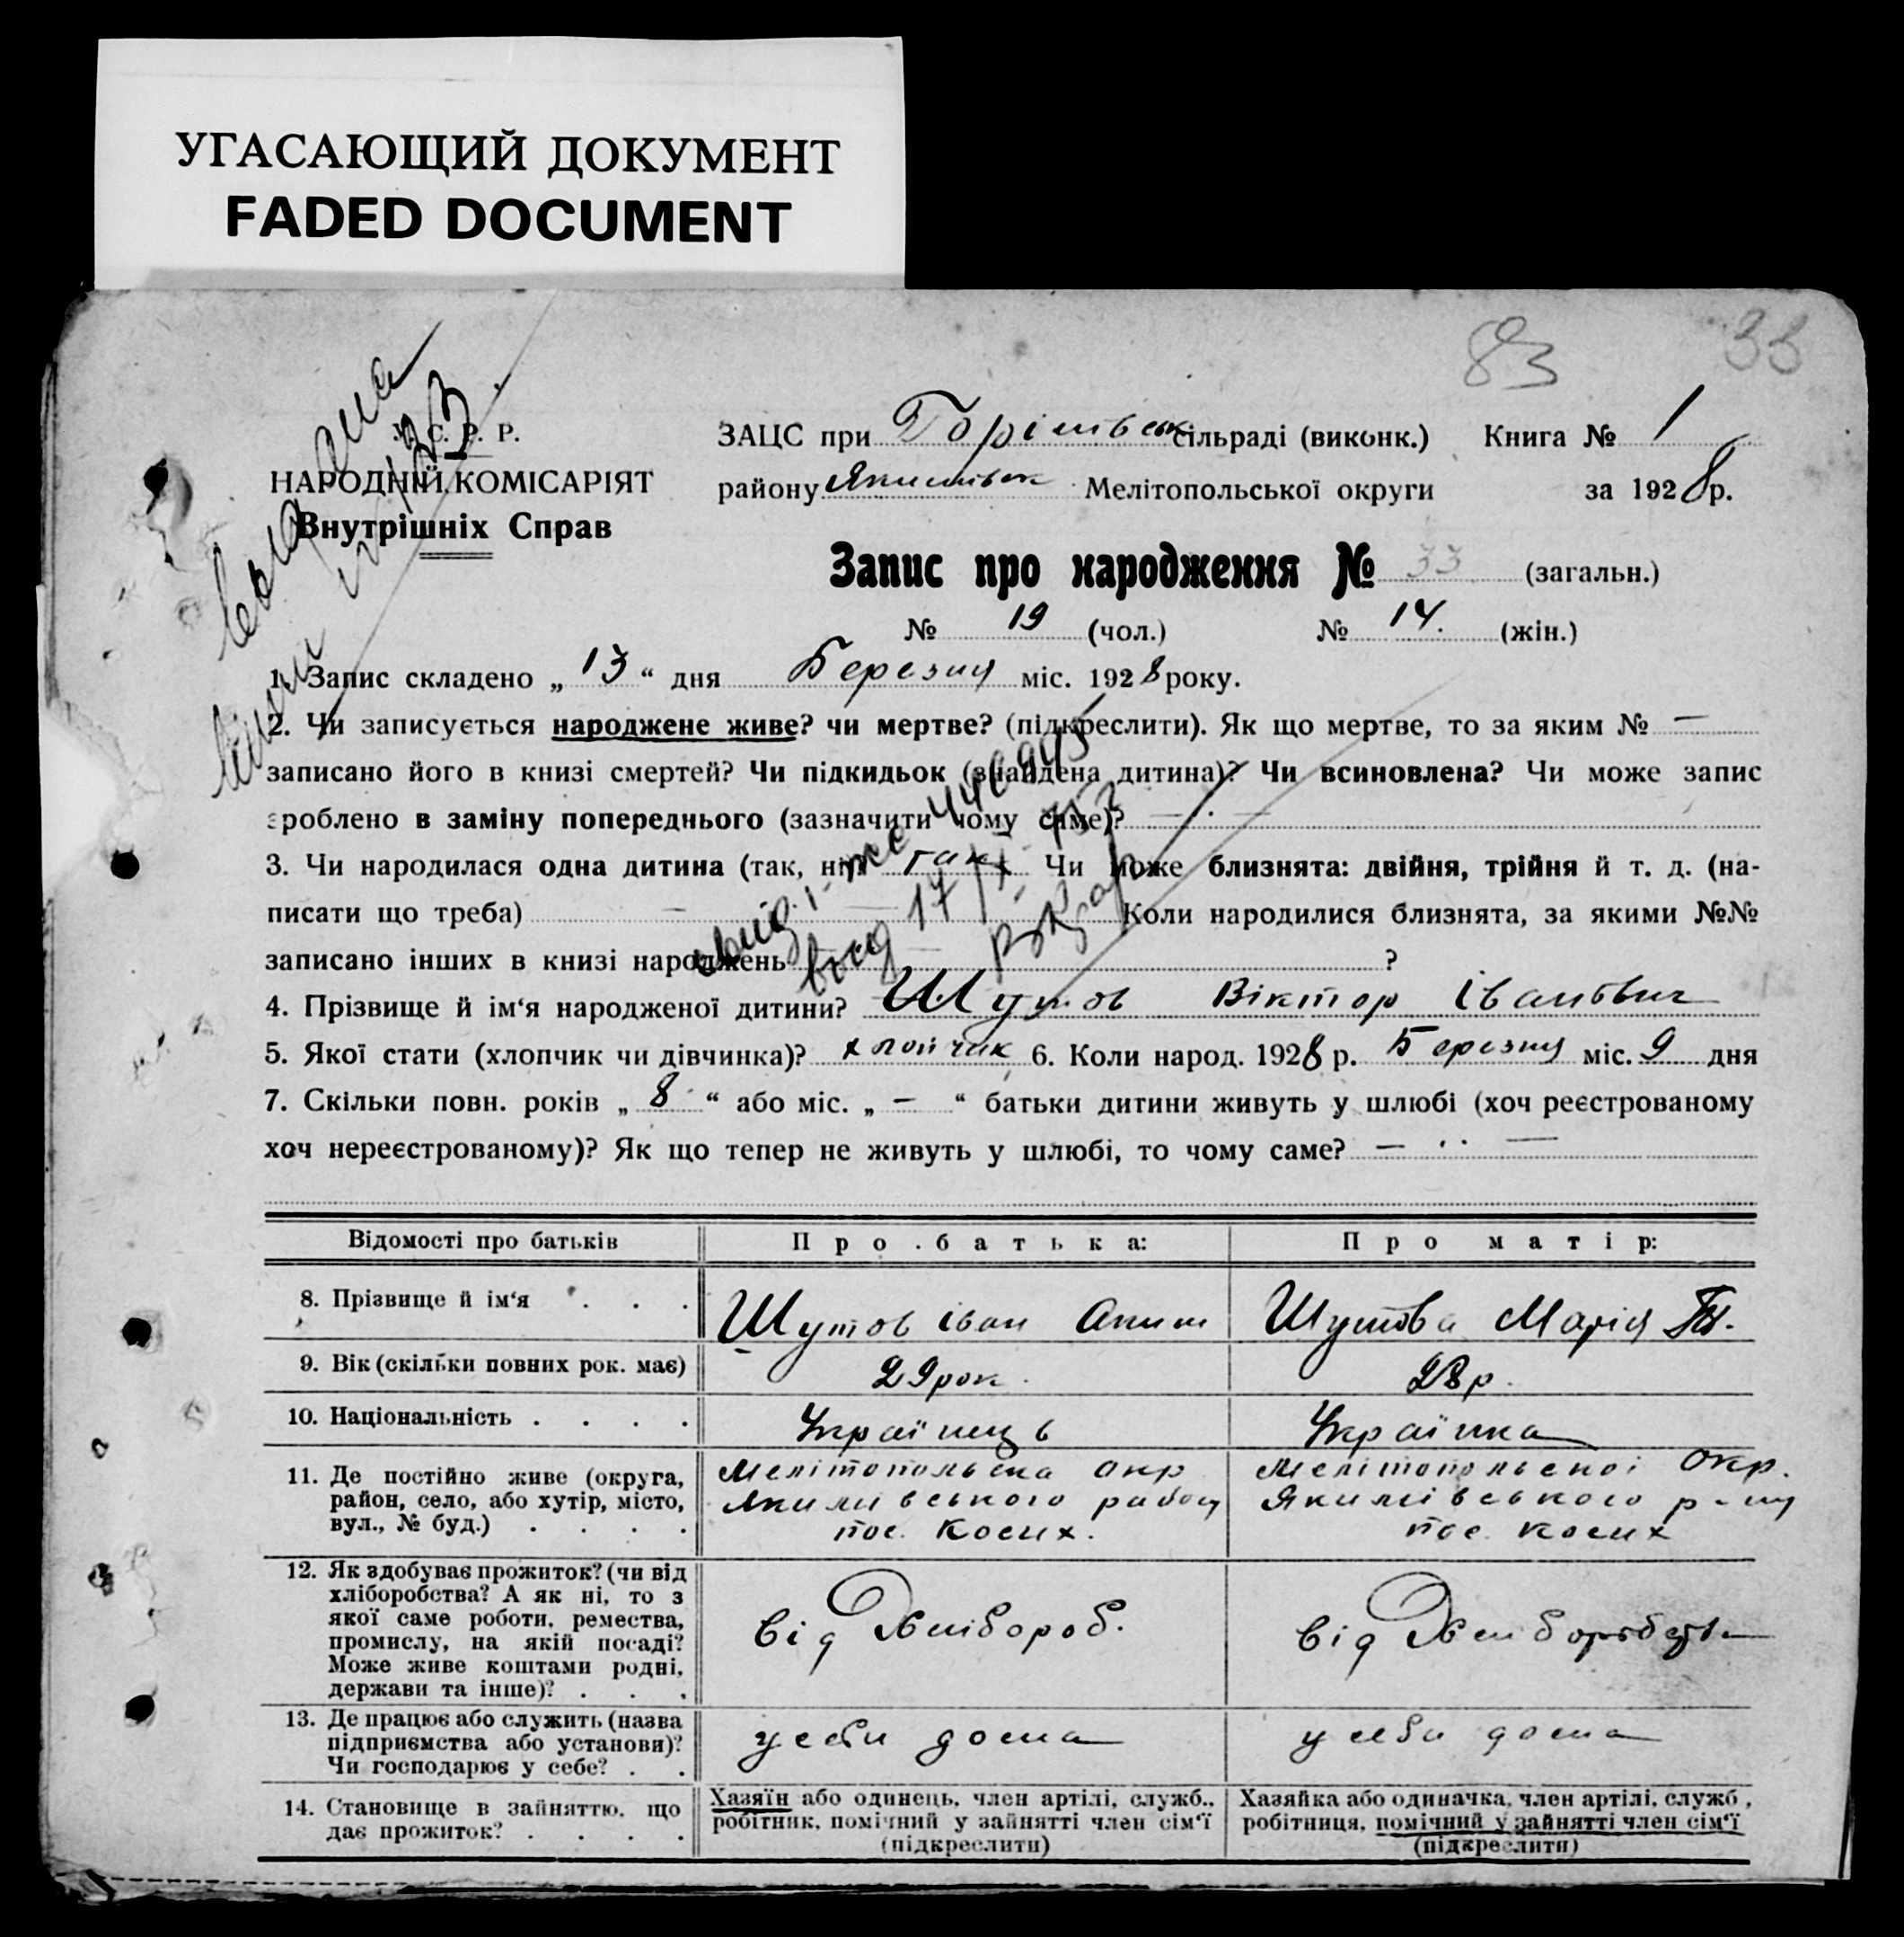 УГАСАЮЩИЙ ДОКУМЕНТ
FADED DOCUMENT
83 33
У. С. Р. Р.
НАРОДНІЙ КОМІСАРІЯТ
Внутрішніх Справ
ЗАЦС при сільраді (виконк.) Книга № 1
району Якимівськ Мелітопольської округи за 1928 р.
Запис про народження № 33 (загальн.)
№ 19 (чол.) № 14. (жін.)
1. Запис складено „ 13 “ дня Березня міс. 1928 року.
2. Чи записується народжене живе? чи мертве? (підкреслити). Як що мертве, то за яким № —
записано його в книзі смертей? Чи підкидьок (знайдена дитина)? Чи всиновлена? Чи може запис
зроблено в заміну попереднього (зазначити чому саме)? —
3. Чи народилася одна дитина (так, ні) так Чи може близнята: двійня, трійня й т. д. (на-
писати що треба) — Коли народилися близнята, за якими №№
записано інших в книзі народжень ?
4. Прізвище й ім‘я народженої дитини? Шутов Віктор Іванович
5. Якої стати (хлопчик чи дівчинка)? хлопчик 6. Коли народ. 1928 р. Березня міс. 9 дня
7. Скільки повн. років „ 8 “ або міс. „ — “ батьки дитини живуть у шлюбі (хоч реєстрованому
хоч нереєстрованому)? Як що тепер не живуть у шлюбі, то чому саме? —
Відомості про батьків Про батька: Про матір:
8. Прізвище й ім‘я Шутов Іван Аким Шутова Марія
9. Вік (скільки повних рок. має) 29 рок. 28 р.
10. Національність Українець Українка
11. Де постійно живе (округа, район, село, або хутір, місто, вул., № буд.)
Мелітопольська окр Якимівського району пос. Косих.
Мелітопольської Окр. Якимівського р-ну пос. Косих
12. Як здобуває прожиток? (чи від хліборобства? А як ні, то з якої саме роботи, ремества, промислу, на якій посаді? Може живе коштами родні, держави та інше)?
від Хлібороб.
від Хліборобств
13. Де працює або служить (назва підприємства або установи)? Чи господарює у себе?
у себи дома
у себи дома
14. Становище в зайняттю, що дає прожиток?
Хазяїн або одинець, член артілі, служб., робітник, помічний у зайнятті член сім‘ї (підкреслити)
Хазяйка або одиначка, член артілі, служб., робітниця, помічний у зайнятті член сім‘ї (підкреслити)